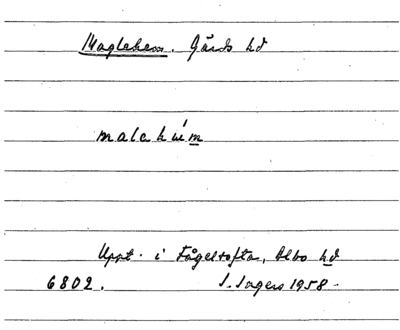 Maglehem. Gärds hd
Uppt. i Fågeltofta, Albo hd
6802. S. Ingers 1958